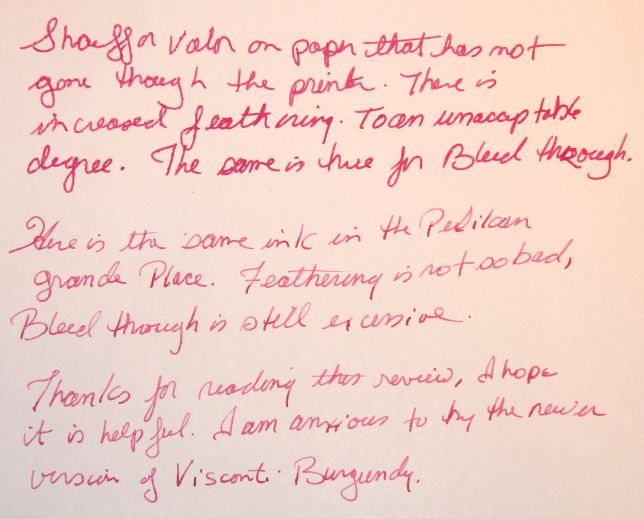 Sheaffer Valor on paper that has not
gone though the printer. There is
increased feathering. To an unacceptable
degree. The same is true for Bleed through.
Here is the same ink in the Pelikan
grande Place. Feathering is not so bad,
Bleed through is still excessive.
Thanks for reading this review, I hope
it is helpful. I am anxious to try the newer
version of Visconti Burgundy.